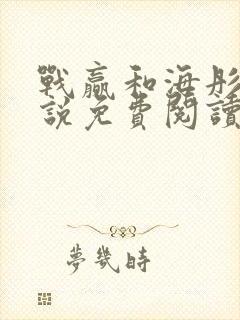 戰贏和海彤
說免費閱讀
夢幾時